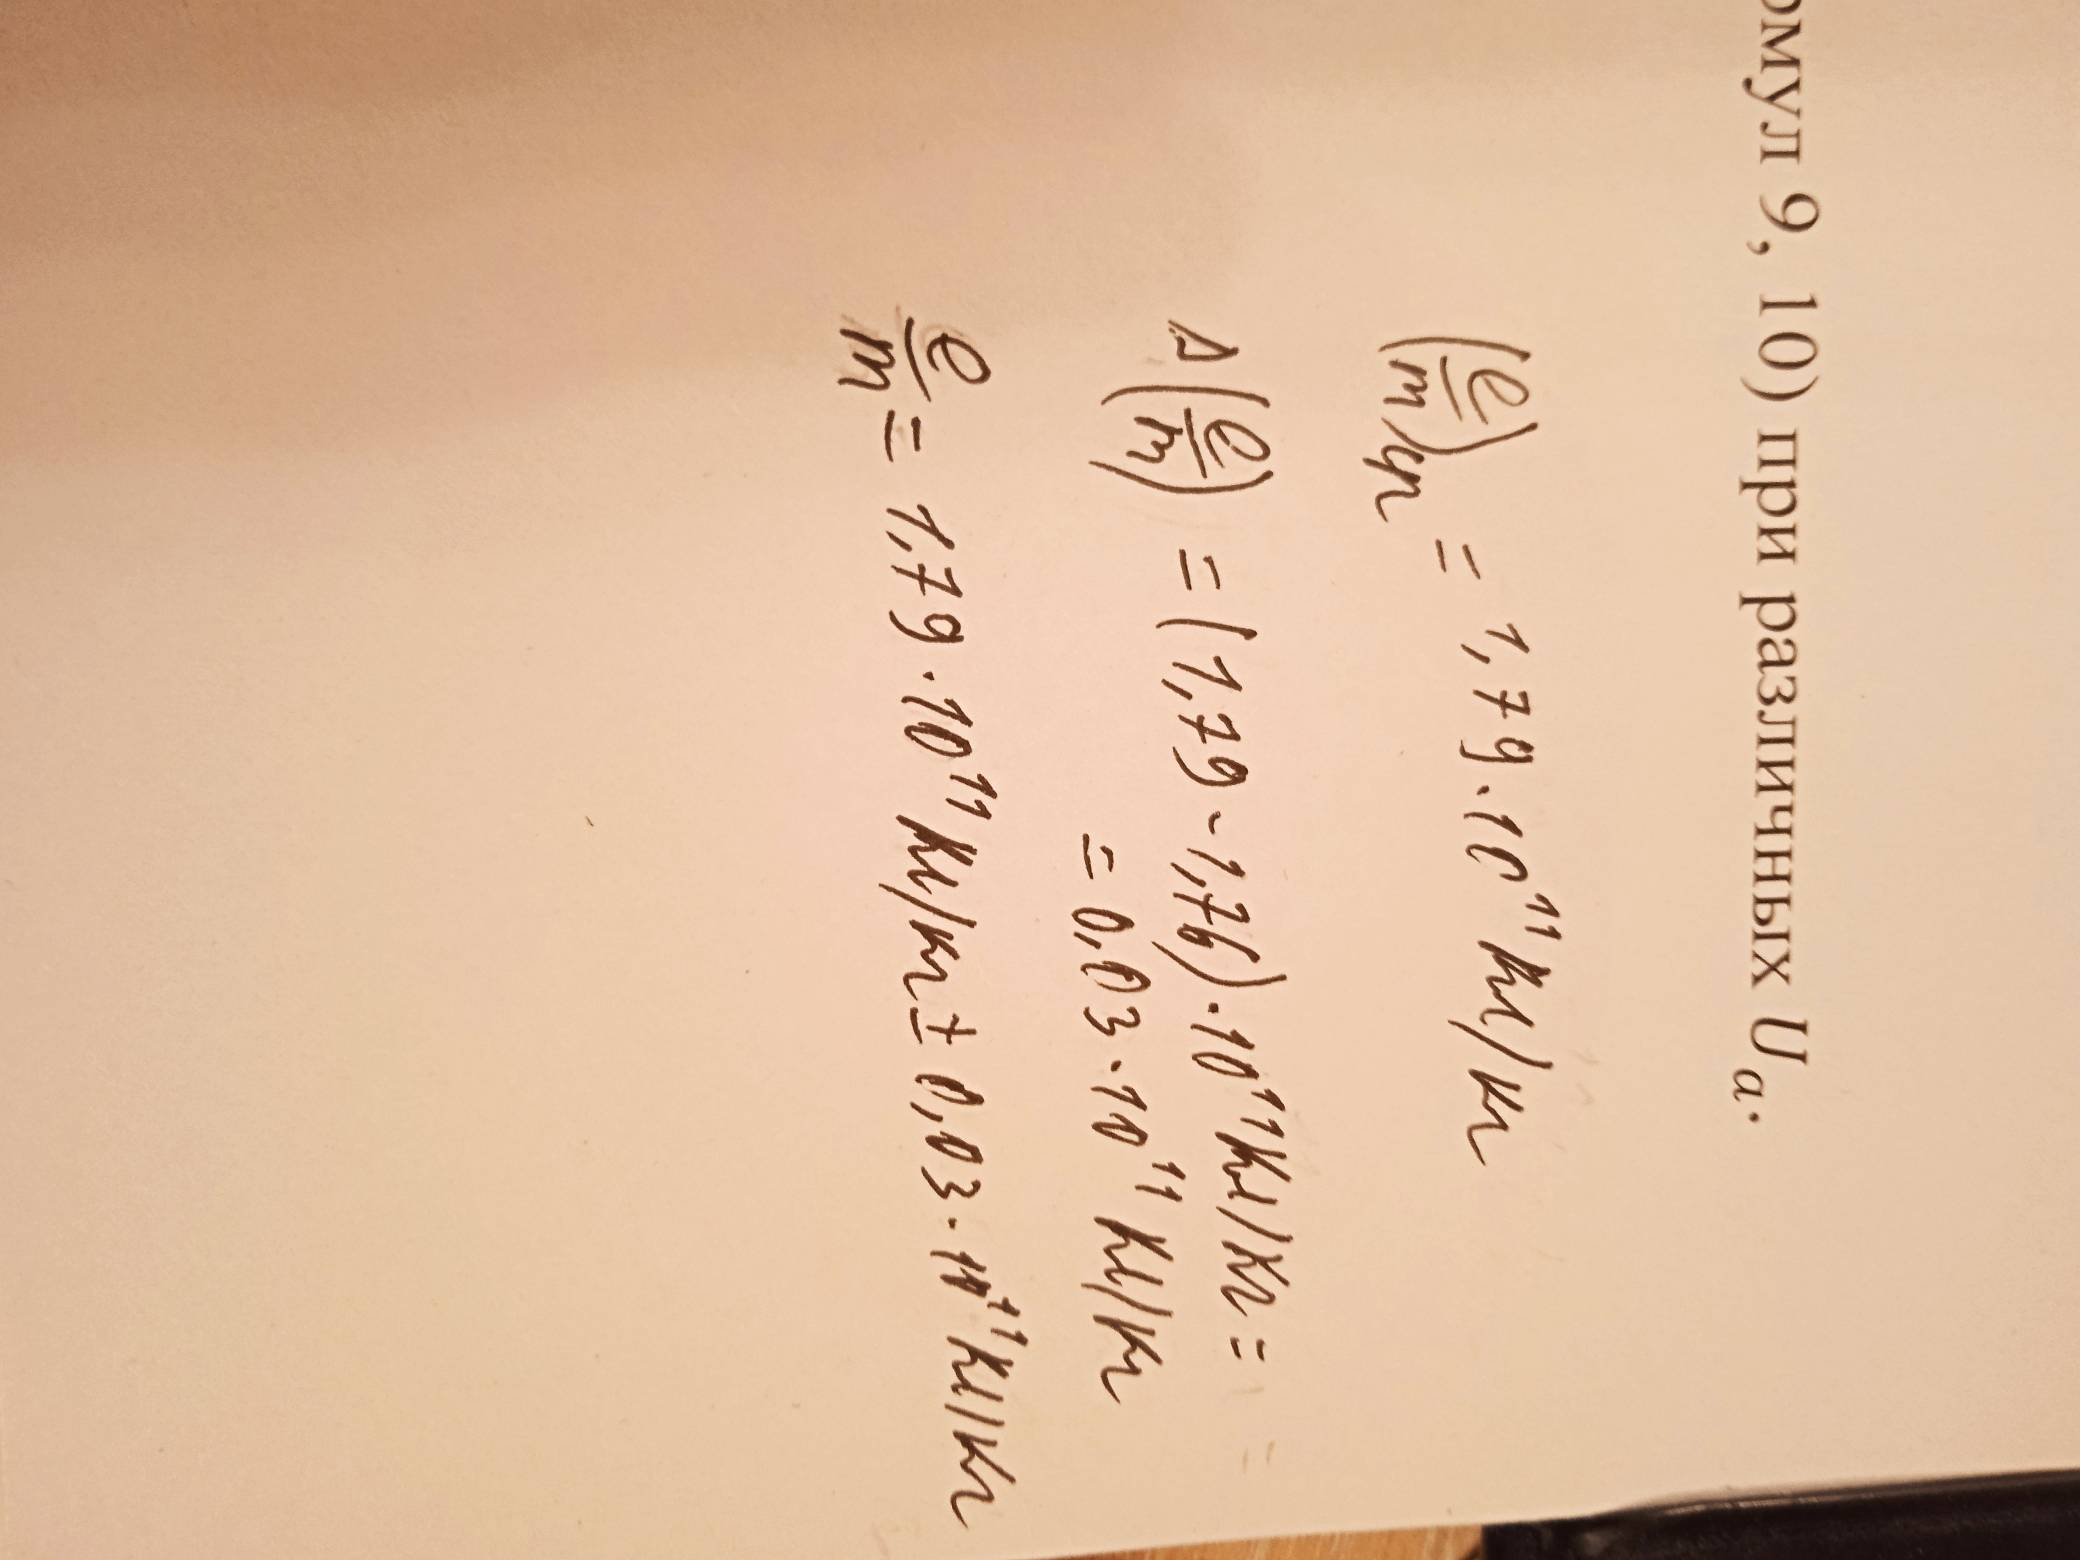 ормул 9, 10) при различных Uₐ.
(e/m)ср = 1,79 · 10¹¹ Кл/кг
Δ(e/m) = (1,79 - 1,76) · 10¹¹ Кл/кг =
= 0,03 · 10¹¹ Кл/кг
e/m = 1,79 · 10¹¹ Кл/кг ± 0,03 · 10¹¹ Кл/кг